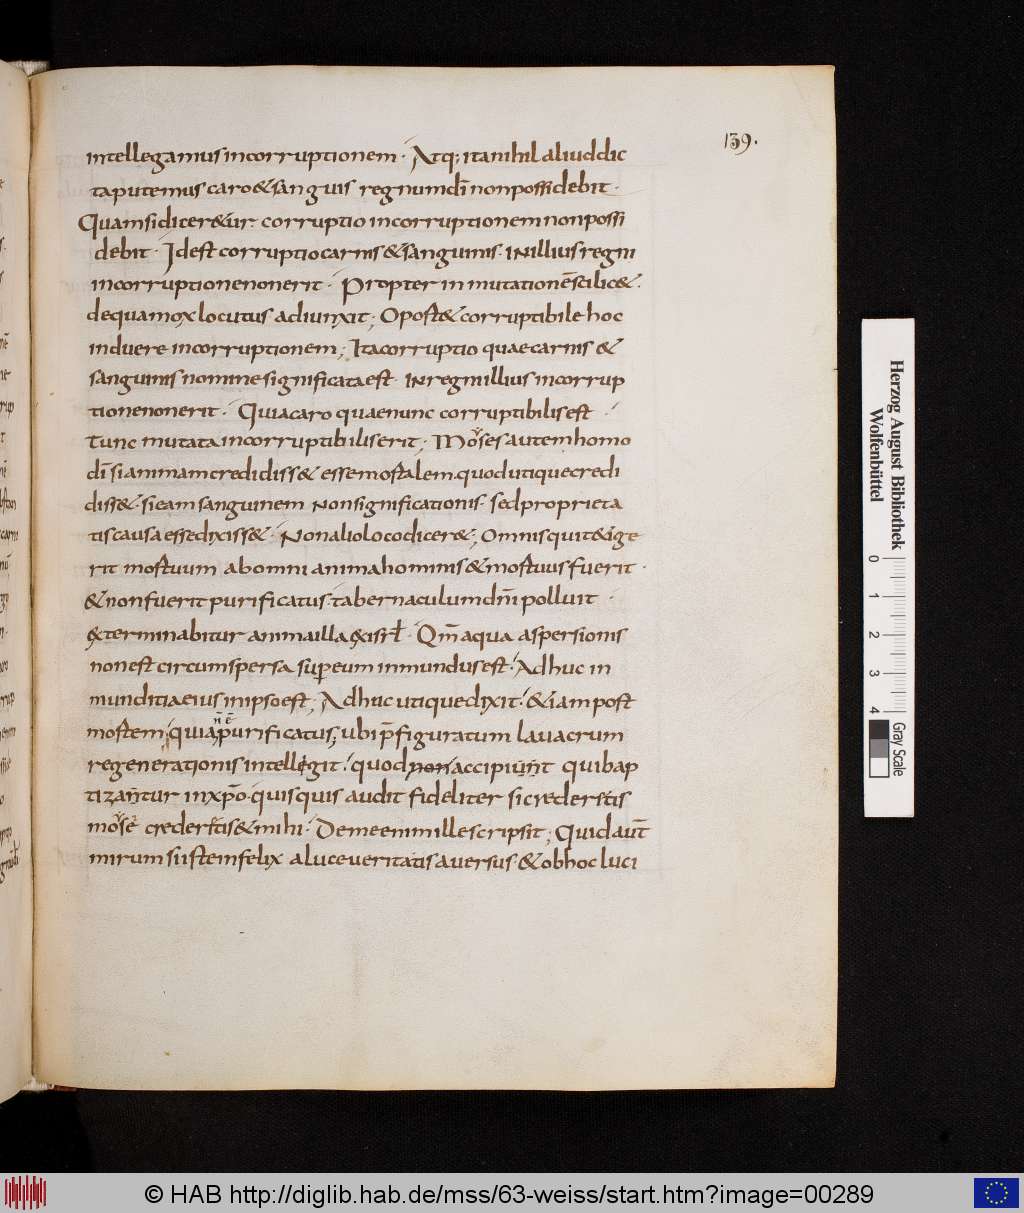 139.
intellegamus incorruptionem · Atq; ita nihil aliud dic
ta putemus caro & sanguis regnum dī non possidebit ·
Quam si dicer&ur corruptio incorruptionem non possi
debit · Id est corruptio carnis & sanguinis · IN illius regni
incorruptione non erit · Propter inmutationē scilic&
de qua mox locutus adiunxit; Oport& corruptibile hoc
induere incorruptionem; Ita corruptio quae carnis &
sanguinis nomine significata est · IN regni illius incorrup
tione non erit · Quia caro quae nunc corruptibilis est ·
tunc mutata incorruptibilis erit; Moyses autem homo
dī si animam credidiss& esse mortalem quod utique credi
diss& · si eam sanguinem Non significationis · sed proprieta
tis causa esse dixiss& · Non alio loco dicer&; Omnis qui t&ige
rit mortuum ab omni anima hominis & mortuus fuerit ·
& non fuerit purificatus · tabernaculum dn̄i polluit ·
exterminabitur anima illa ex isrł · Qm̄ aqua aspersionis
non est circumspersa super eum inmundus est · Adhuc in
munditia eius in ipso est; Adhuc utique dixit · & iam post
mortem; quia purificatus nē; ubi p̄figuratum lavacrum
regenerationis intellegit · quod non accipiunt qui bap
tizantur in xp̄o · quisquis audit fideliter si crederetis
moysē crederetis & mihi · De me enim ille scripsit; Quid aut̄
mirum si istem felix a luce veritatis aversus & ob hoc luci
Herzog August Bibliothek
Wolfenbüttel
0 1 2 3 4
Gray Scale
© HAB http://diglib.hab.de/mss/63-weiss/start.htm?image=00289